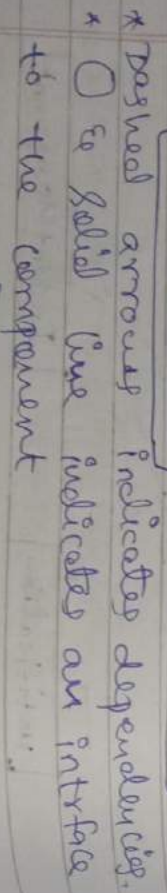 * Dashed arrows indicates dependencies.
* ○ & Solid line indicates an intrface
to the component